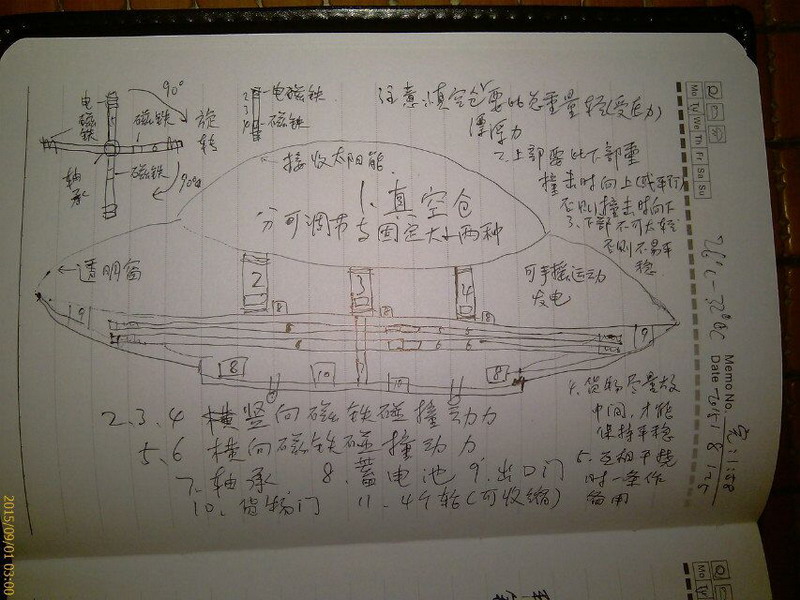 90°
电磁铁
磁铁
旋转
轴承
磁铁
90°
2
3
4
电磁铁
磁铁
注意:真空仓要比总重量轻(受压力)
漂浮力
2、上部需比下部重
撞击时向上(或平行)
否则撞击时向下
3、下部不可太轻
否则不易平稳
接收太阳能
1、真空仓
分可调节与固定大小两种
透明窗
可手摇运动
发电
2
3
4
8
8
9
6
6
9
7
8
10
10
8
2、3、4 横竖向磁铁碰撞动力
5、6 横向磁铁碰撞动力
7、轴承 8、蓄电池 9、出口门
10、货物门 11、4个轮(可收缩)
4、货物尽量放
中间,才能
保持平稳
5、互相干扰
时一条作
备用
26°C-32°C
Memo No.
Date
Mo Tu We Th Fr Sa Su
2015/09/01 03:00
Mo Tu